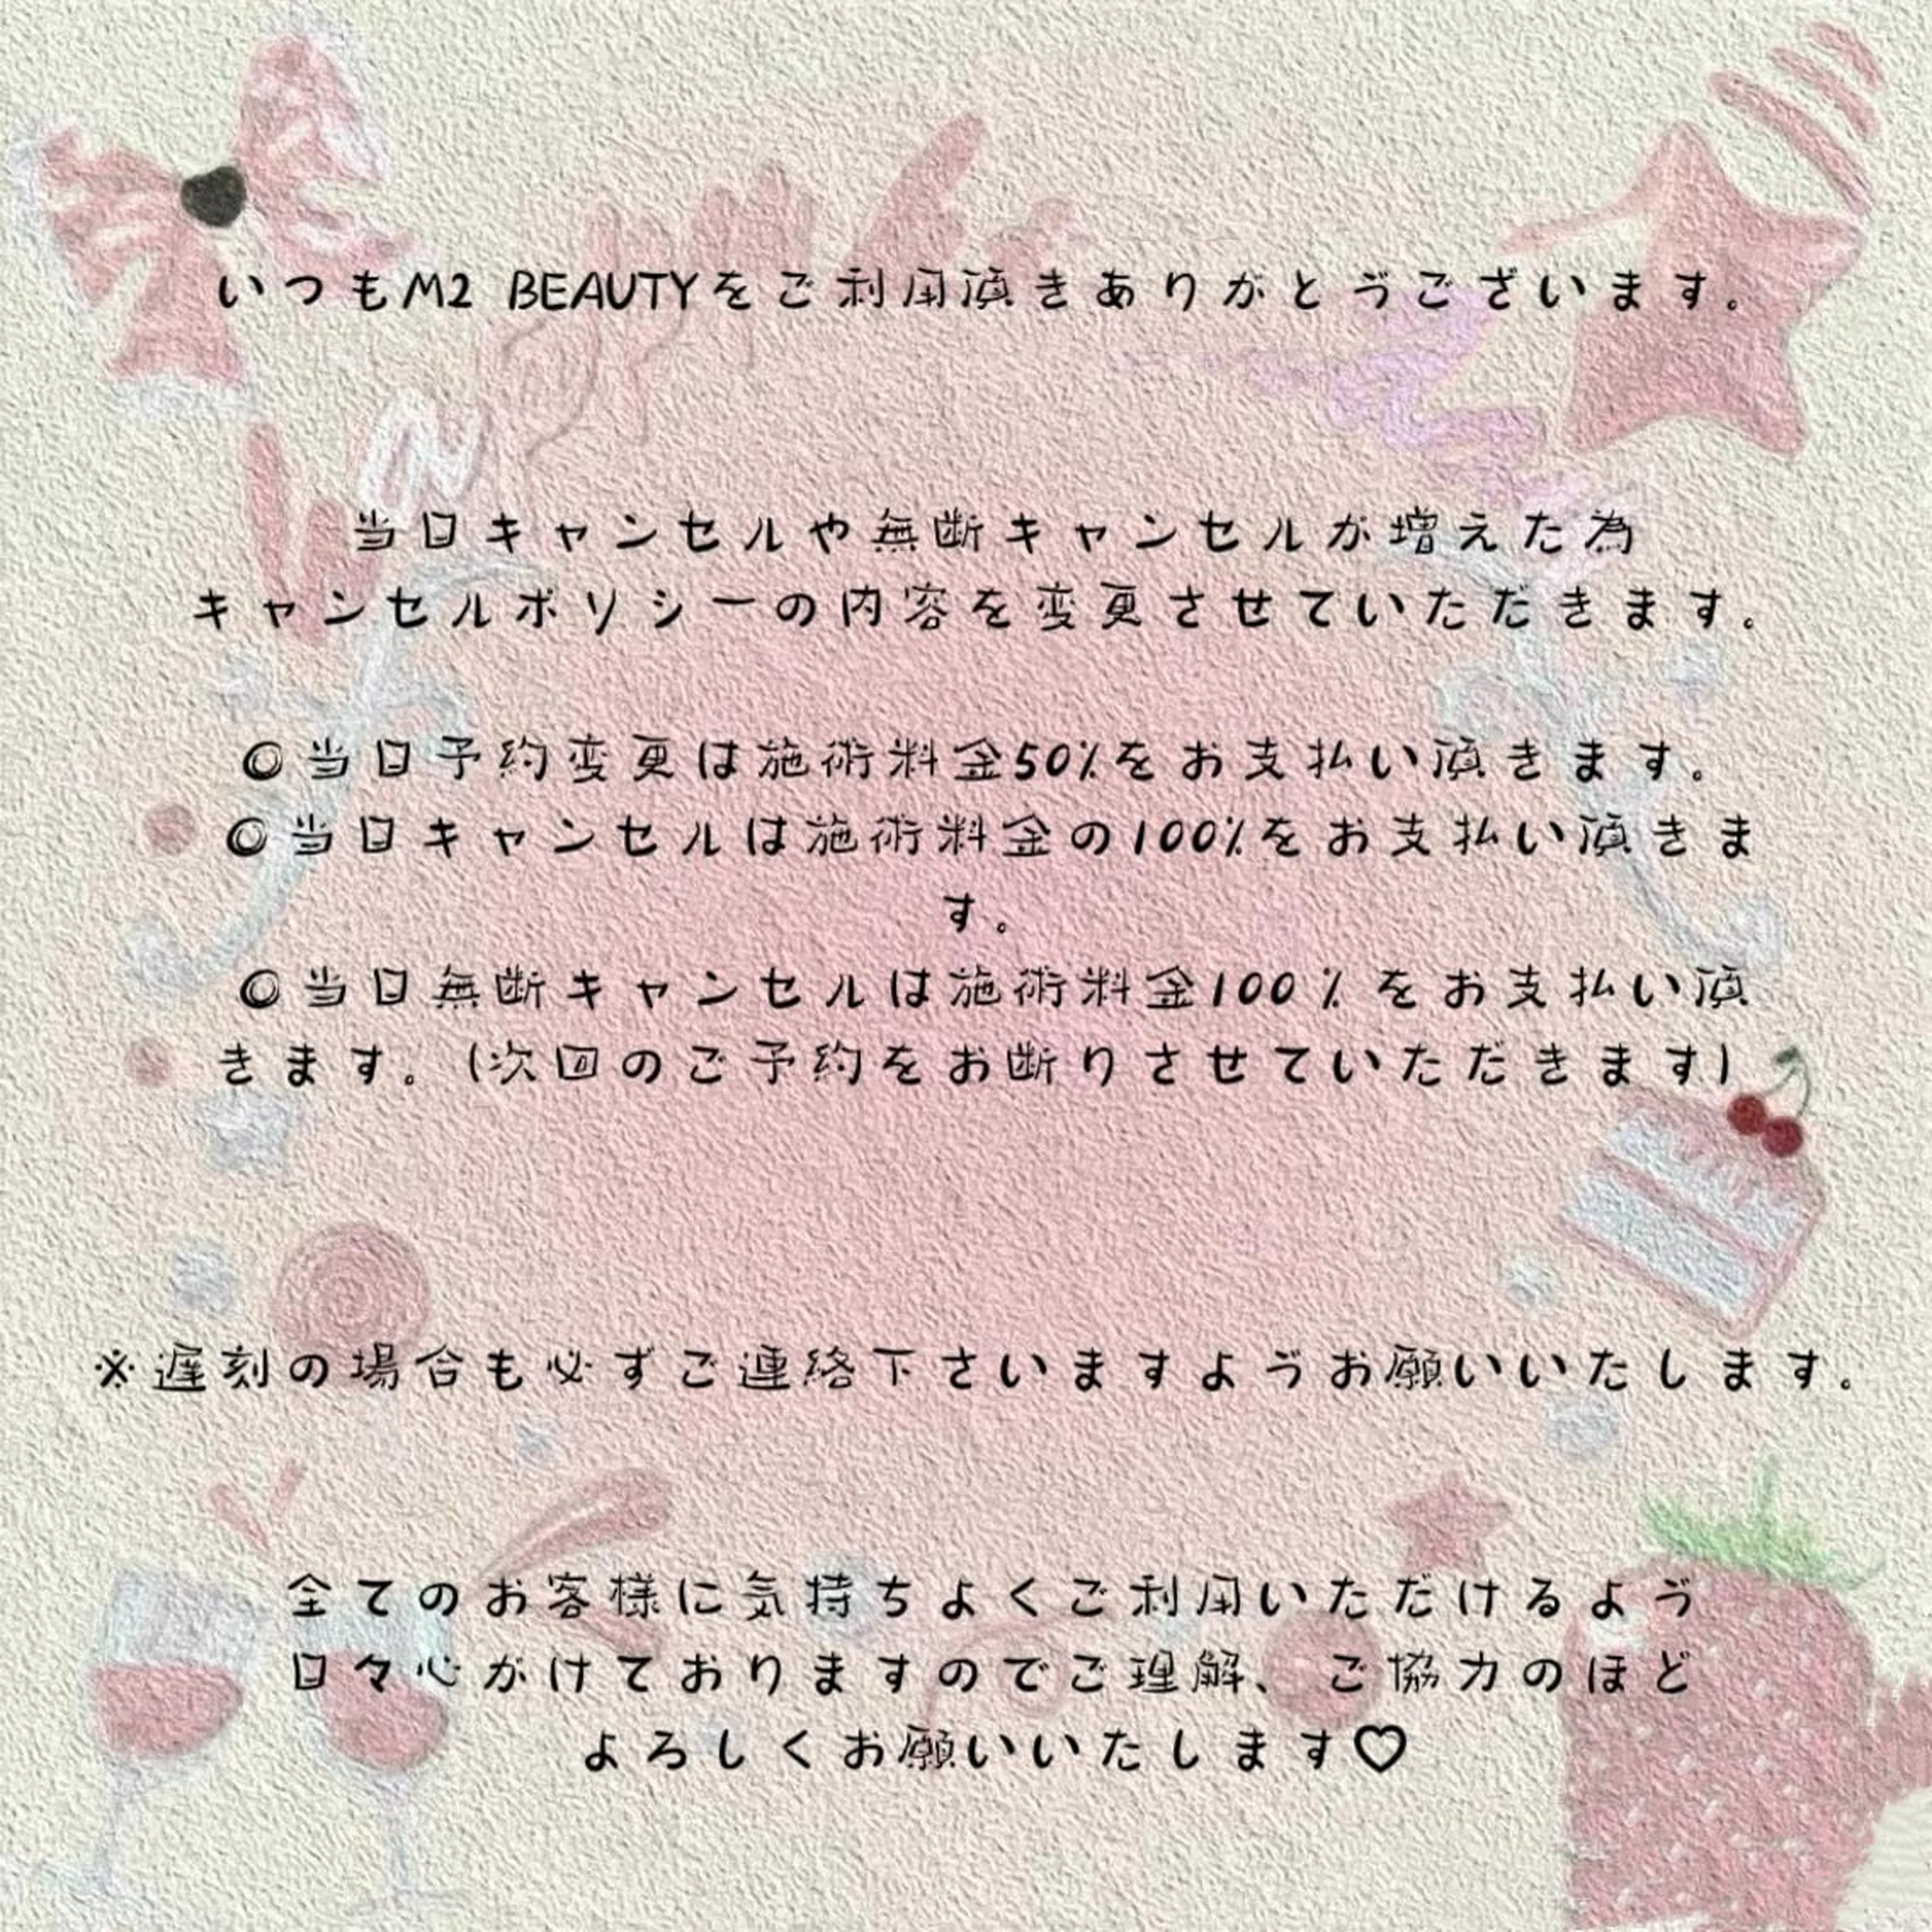 いつもM2 BEAUTYをご利用頂きありがとうございます。
当日キャンセルや無断キャンセルが増えた為
キャンセルポリシーの内容を変更させていただきます。
◎当日予約変更は施術料金50%をお支払い頂きます。
◎当日キャンセルは施術料金の100%をお支払い頂きま
す。
◎当日無断キャンセルは施術料金100％をお支払い頂
きます。(次回のご予約をお断りさせていただきます)
※遅刻の場合も必ずご連絡下さいますようお願いいたします。
全てのお客様に気持ちよくご利用いただけるよう
日々心がけておりますのでご理解、ご協力のほど
よろしくお願いいたします♡